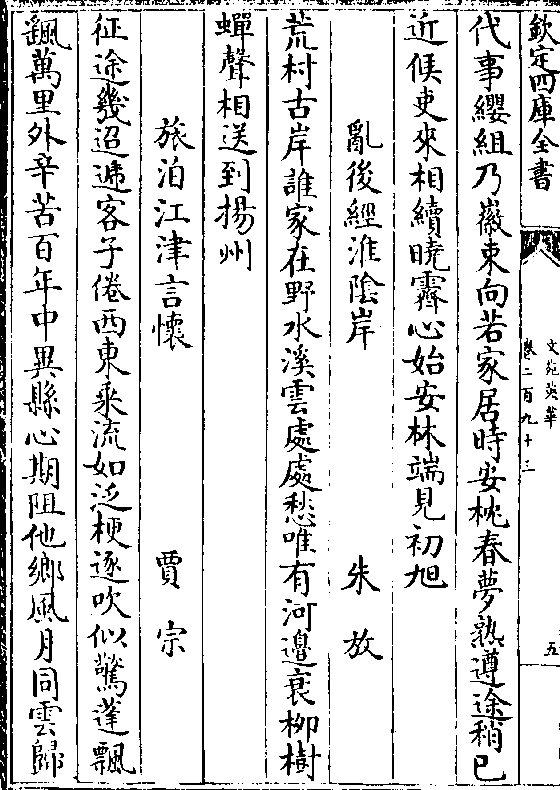 欽定四庫全書
文苑英華
卷二百九十三
五
代事纓組乃徽束向若家居時安枕春夢熟遵途稍已
近候吏來相續曉霽心始安林端見初旭
亂後經淮陰岸 朱放
荒村古岸誰家在野水溪雲處處愁唯有河邊衰柳樹
蟬聲相送到揚州
旅泊江津言懷 賈宗
征途幾迢遞客子倦西東乘流如泛梗逐吹似驚蓬飄
飄萬里外辛苦百年中異縣心期阻他鄉風月同雲歸